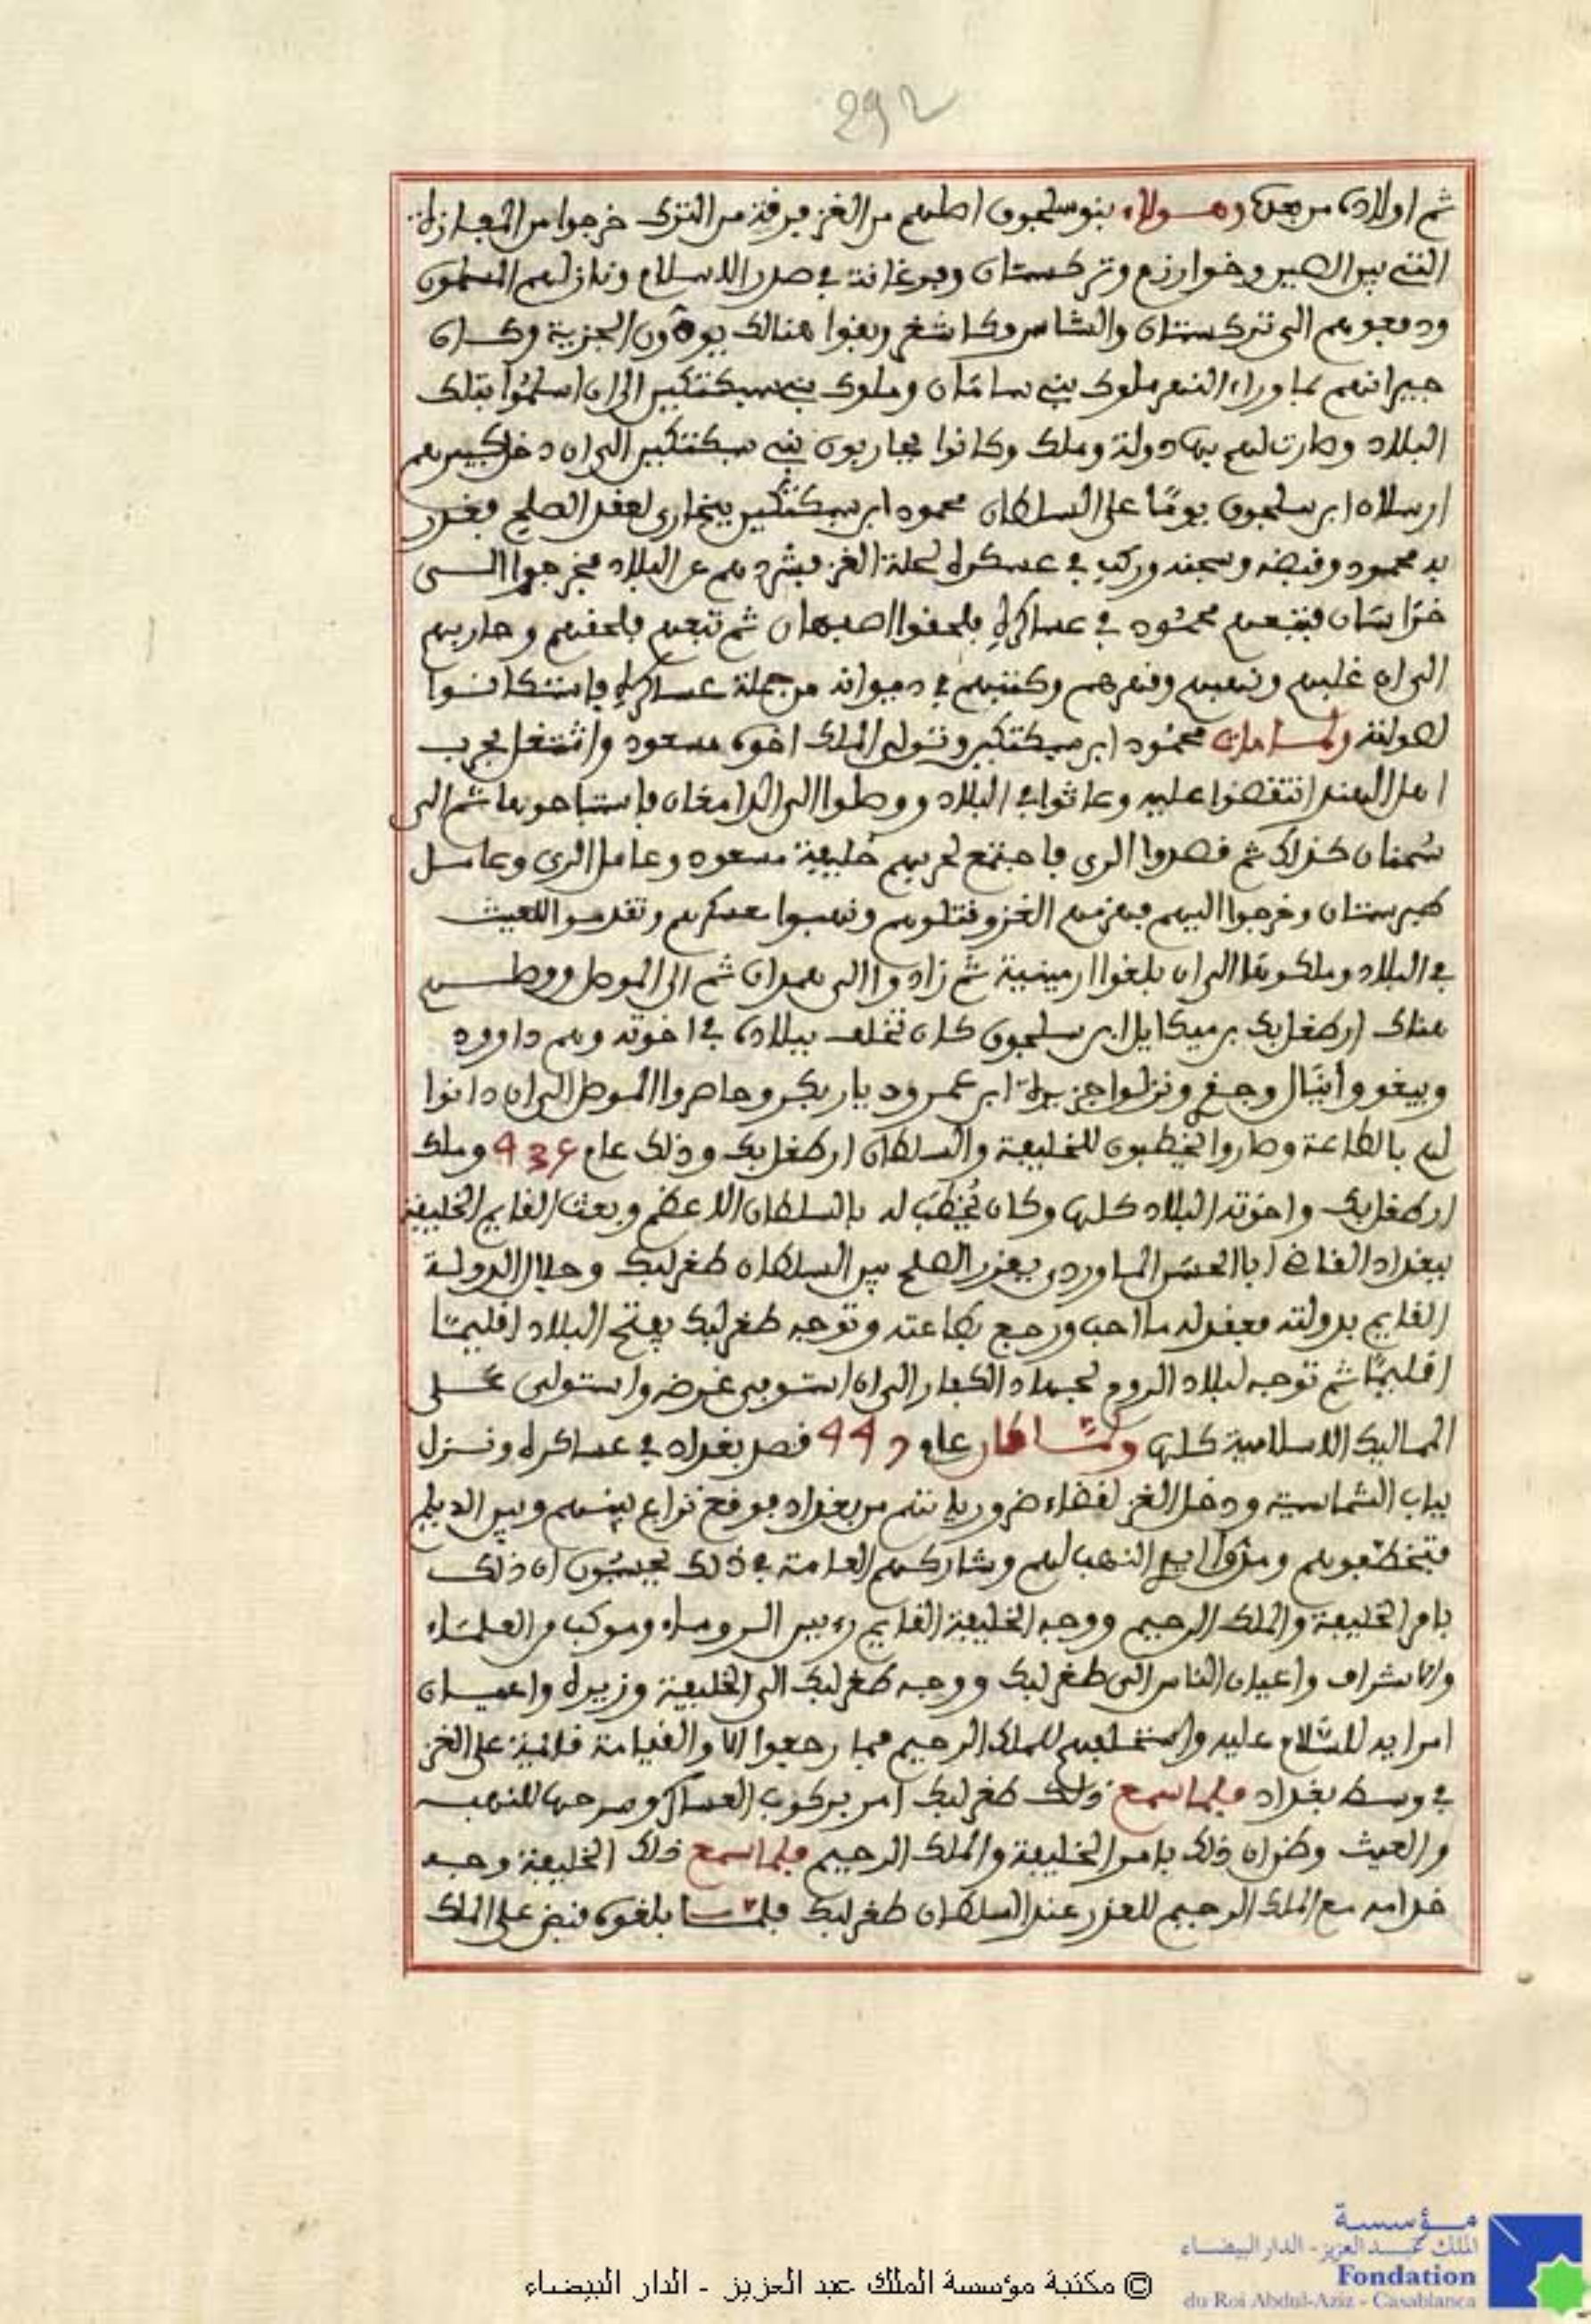 292
ثم اولاده من بعده وهـــولاء بنو سلجوق اصلهم من الغز فرقة من الترك خرجوا من المفازة
التي بين الصين وخوارزم وتركستان وفرغانة في صدر الاسلام ونازلهم المسلمون
ودفعوهم الى تركستان والشاس وكاشغر وبقوا هنالك يودون الجزية وكـــان
جيرانهم بما وراء النهر ملوك بني سامان وملوك بني سبكتكين الى ان اسلموا بتلك
البلاد وصارت لهم بها دولة وملك وكانوا يحاربون بني سبكتكين الى ان دخل كبيرهم
ارسلان ابن سلجوق يومًا على السلطان محمود ابن سبكتكين ببخارى لعقد الصلح فغدر
به محمود وقبضه وسجنه وركب في عسكره لحلة الغز فشردهم عن البلاد فخرجوا الـــى
خراسان فتبعهم محمود في عساكره فلحقوا اصبهان ثم تبعهم فلحقهم وحاربهم
الى ان غلبهم ونهبهم وقهرهم وكتبهم في ديوانه من جملة عساكره فاستكانـــوا
لصولته ولما مات محمود ابن سبكتكين وتولى الملك اخوه مسعود واشتغل بحرب
اهل الهند انتقضوا عليه وعاثوا في البلاد ووصلوا الى الدامغان فاستباحوها ثم الى
سمنان كذلك ثم قصدوا الري فاجتمع لحربهم خليفة مسعود وعامل الري وعامـــل
طبرستان وخرجوا اليهم فهزمهم الغز وقتلوهم ونهبوا معسكرهم وتقدموا للعيث
في البلاد وملكوها الى ان بلغوا ارمينية ثم زادوا الى همدان ثم الى الموصل ووصلـــهم
هناك ارطغلبك بن ميكايل ابن سلجوق كان تخلف ببلاده في اخوته وهم داوود
وبيغو وانيال وجـغـر ونزلوا جزيرة ابن عمر وديار بكر وحاصروا الموصل الى ان دانوا
لهم بالطاعة وصاروا يخطبون للخليفة والسلطان ارطغلبك وذلك عام 436 وملك
ارطغلبك واخوته البلاد كلها وكان يُخطَب له بالسلطان الاعظم وبعث القايم الخليفة
ببغداد القاضي ابا الحسن الماوردي يقرر الصلح بين السلطان طغرلبك وجلال الدولـة
القايم بدولته فعقد له ما احب ورجع بطاعته وتوجه طغرلبك يفتح البلاد اقليمًا
اقليمًا ثم توجه لبلاد الروم لجهاد الكفار الى ان استوفى غرضه واستولى عـــلى
الممالك الاسلامية كلها ولما كان عام 447 قصد بغداد في عساكره ونـــزل
بباب الشماسية ودخل الغز لقضاء ضرورياتهم من بغداد فوقع نزاع بينهم وبين الديلم
فتخطفوهم ومدوا ايدي النهب لهم وشاركهم العامة في ذلك يحسبون ان ذلـــك
بامر الخليفة والملك الرحيم ووجه الخليفة القايم رءيس الروساء وموكب من العلماء
والاشراف واعيان الناس الى طغرلبك ووجه طغرلبك الى الخليفة وزيره واعيـــان
امرايه للسلام عليه واستحلفهم للملك الرحيم فما رجعوا الا والقيامة قايمة على الغز
في وسط بغداد فلما سمع ذلك طغرلبك امر بركوب العساكر وسرحها للنهب
والعيث وظن ان ذلك بامر الخليفة والملك الرحيم فلما سمع ذلك الخليفة وجـــه
خدامه مع الملك الرحيم للعذر عند السلطان طغرلبك فلمـــا بلغوه قبض على الملك
مؤسسة
الملك عبد العزيز - الدار البيضاء
Fondation
du Roi Abdul-Aziz - Casablanca
© مكتبة مؤسسة الملك عبد العزيز - الدار البيضاء